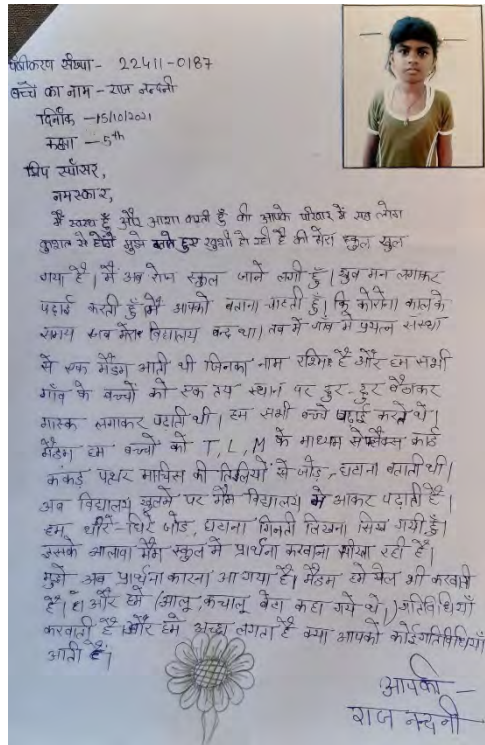 पंजीकरण संख्या- 22411-0187
बच्चे का नाम - राज नन्दनी
दिनाँक -15/10/2021
कक्षा - 5th
प्रिय स्पॉसर,
नमस्कार,
मैं स्वस्थ हूँ और आशा करती हूँ की आपके परिवार में सब लोग
कुशल से होंगे मुझे बताते हुए खुशी हो रही है की मेरा स्कूल खुल
गया है। मैं अब रोज स्कूल जाने लगी हूँ। खुब मन लगाकर
पढ़ाई करती हूँ मैं आपको बताना चाहती हूँ। कि कोरोना काल के
समय जब मेरा विद्यालय बन्द था। तब में गाँव में प्रयत्न संस्था
से एक मैडम आती थी जिनका नाम रश्मि है और हम सभी
गाँव के बच्चों को एक तय स्थान पर दुर-दुर बैठाकर
मास्क लगाकर पढ़ाती थी। हम सभी बच्चे पढ़ाई करते थे।
मैडम हम बच्चों को T,L,M के माध्यम से फ्लैक्स कार्ड
कंकड़ पत्थर माचिस की तिलियों से जोड़, घटाना बताती थी।
अब विद्यालय खुलने पर मैम विद्यालय में आकर पढ़ाती है।
हम धीरे-धिरे जोड़, घटाना गिनती लिखना सिख गयी हूँ।
इसके आलावा मैम स्कूल में प्रार्थना करवाना सीखा रही है।
मुझे अब प्रार्थना कारना आ गया है। मैडम हमे खेल भी करवाती
है। और हमे (आलू कचालू बेटा कहा गये थे।) गतिविधियाँ
करवाती है और हमे अच्छा लगता है क्या आपको कोई गतिविधियाँ
आती है।
आपकी -
राज नन्दनी